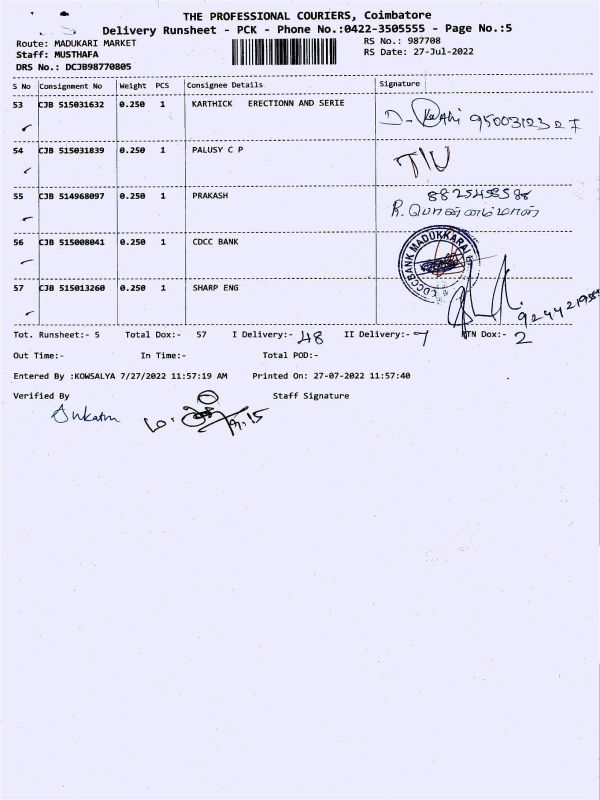 THE PROFESSIONAL COURIERS, Coimbatore
Delivery Runsheet - PCK - Phone No.:0422-3505555 - Page No.:5
Route: MADUKARI MARKET
Staff: MUSTHAFA
DRS No.: DCJB98770805
RS No.: 987708
RS Date: 27-Jul-2022
S No Consignment No Weight PCS Consignee Details Signature
53 CJB 515031632 0.250 1 KARTHICK ERECTIONN AND SERIE
54 CJB 515031839 0.250 1 PALUSY C P
55 CJB 514968097 0.250 1 PRAKASH
R. பொன்னம்மாள்
56 CJB 515008041 0.250 1 CDCC BANK
CDCCBANK MADUKKARAI
57 CJB 515013260 0.250 1 SHARP ENG
Tot. Runsheet:- 5 Total Dox:- 57 I Delivery:- 48 II Delivery:- 7 RTN Dox:- 2
Out Time:- In Time:- Total POD:-
Entered By :KOWSALYA 7/27/2022 11:57:19 AM Printed On: 27-07-2022 11:57:40
Verified By Staff Signature